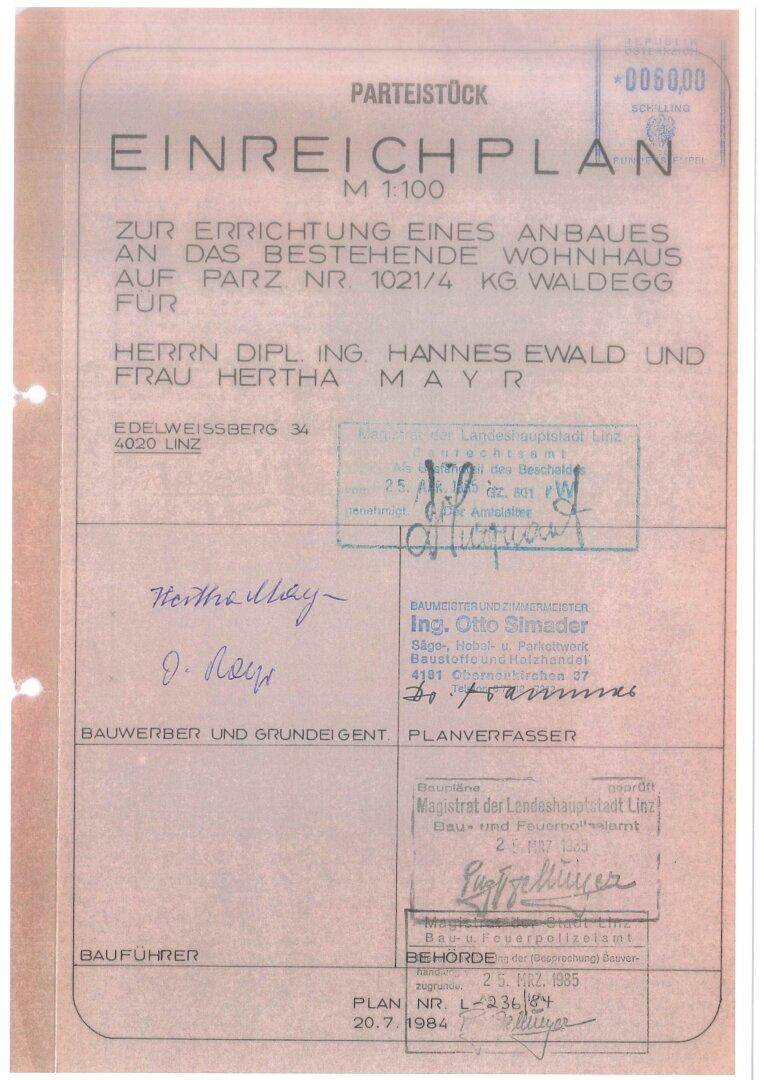 REPUBLIK
ÖSTERREICH
*0060,00
SCHILLING
BUNDESSTEMPEL
PARTEISTÜCK
EINREICHPLAN
M 1:100
ZUR ERRICHTUNG EINES ANBAUES
AN DAS BESTEHENDE WOHNHAUS
AUF PARZ. NR. 1021/4 KG WALDEGG
FÜR
HERRN DIPL. ING. HANNES EWALD UND
FRAU HERTHA MAYR
EDELWEISSBERG 34
4020 LINZ
Magistrat der Landeshauptstadt Linz
Baurechtsamt
Als Bestandteil des Bescheides
vom 25. APR. 1985 GZ. 501 / W
genehmigt. Der Amtsleiter
Hertha Mayr
BAUMEISTER UND ZIMMERMEISTER
Ing. Otto Simader
Säge-, Hobel- u. Parkettwerk
Baustoffe und Holzhandel
4181 Oberneukirchen 37
BAUWERBER UND GRUNDEIGENT.
PLANVERFASSER
Baupläne geprüft
Magistrat der Landeshauptstadt Linz
Bau- und Feuerpolizeiamt
MRZ 1985
Magistrat der Stadt Linz
Bau- u. Feuerpolizeiamt
BAUFÜHRER
BEHÖRDE
ng der (Besprechung) Bauver-
handlung
zugrunde. 25. MRZ. 1985
PLAN NR. L-236/84
20.7.1984